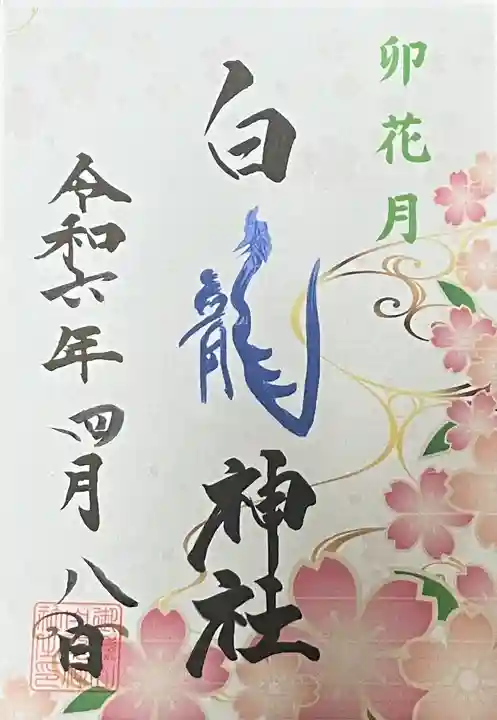 卯花月
白龍神社
令和六年四月八日